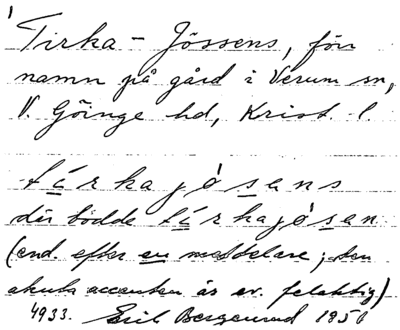 Tirka-Jössens, förr
namn på gård i Verum sn,
V. Göinge hd, Krist. l.
tírkajósans
där bodde tírkajósan
(enl. efter en meddelare; den
akuta accenten är ev. felaktig)
4933. 1950